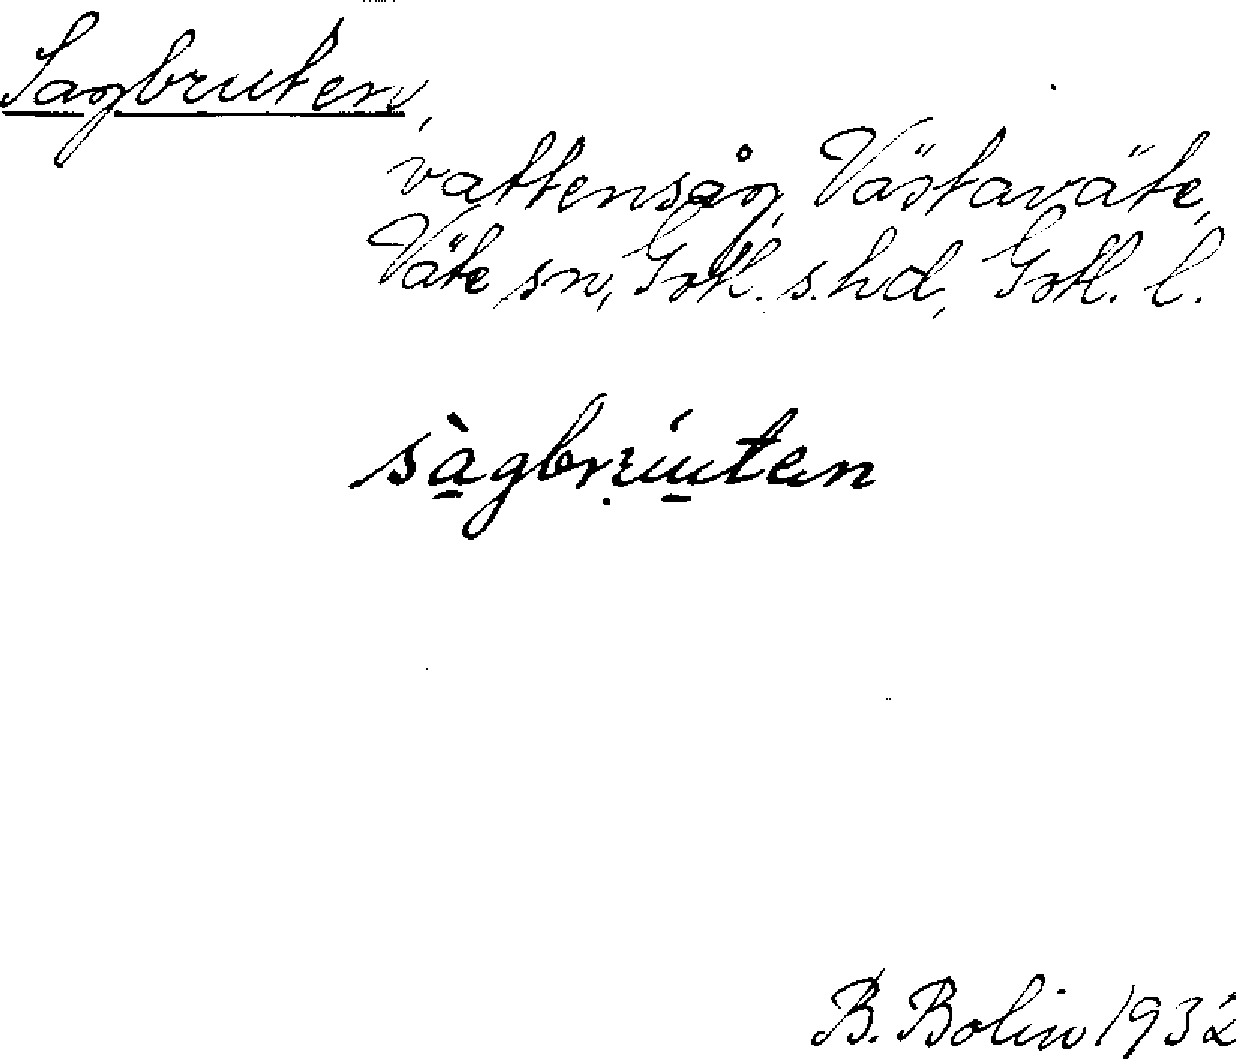 Sagbruten,
vattensåg, Västaväte,
Väte sn, Gotl. s. hd, Gotl. l.
sàgbrúten
B. Bolin 1932